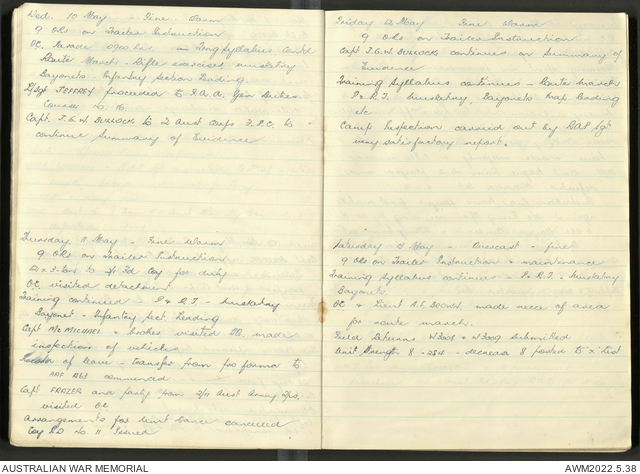 Wed. 10 May - Fine Warm
9 ORs on Trailer Instruction
OC. Parade 0900 hrs - Trng Syllabus contd
Route March - Rifle exercises musketry
Bayonets - Infantry Section Leading
L/Sgt JOFFREY proceeded to F.A.A. Gen Duties
Course No. 16.
Capt. T.G.W. BULLOCK to 2 Aust Corps F.P.C. to
continue Summary of Evidence
Thursday 11 May - Fine Warm
9 ORs on Trailer Instruction.
Coy for duty
OC visited detachment
Training continued - P & R.T. - musketry
Bayonet - Infantry Sect. Leading
Capt McMICHAEL visited made
inspection of vehicles
of leave - transfer from pro forma to
commenced
Capt FRAZER and party from 2/11 Aust Army Tps.
visited OC
arrangements for Unit Dance cancelled
Coy RO No. 11 Issued
Friday 12 May Fine Warm
9 ORs on Trailer Instruction
Capt T.G.W BULLOCK continues on Summary of
Evidence
Training Syllabus continues - Route marches
P & R.T. musketry, Bayonets map reading
etc
Camp Inspection carried out by RAP Sgt
very satisfactory report.
Saturday 13 May - Overcast - fine
9 ORs on Trailer Instruction & maintenance
Training Syllabus continues - P & R.T. - musketry
Bayonets.
OC & Lieut A.F. BROWN. made recce of area
for route march.
Field Returns W3008 & W3009 submitted
Unit Strength 8 - 254 - decrease 8 posted to "X" list
AUSTRALIAN WAR MEMORIAL
AWM2022.5.38